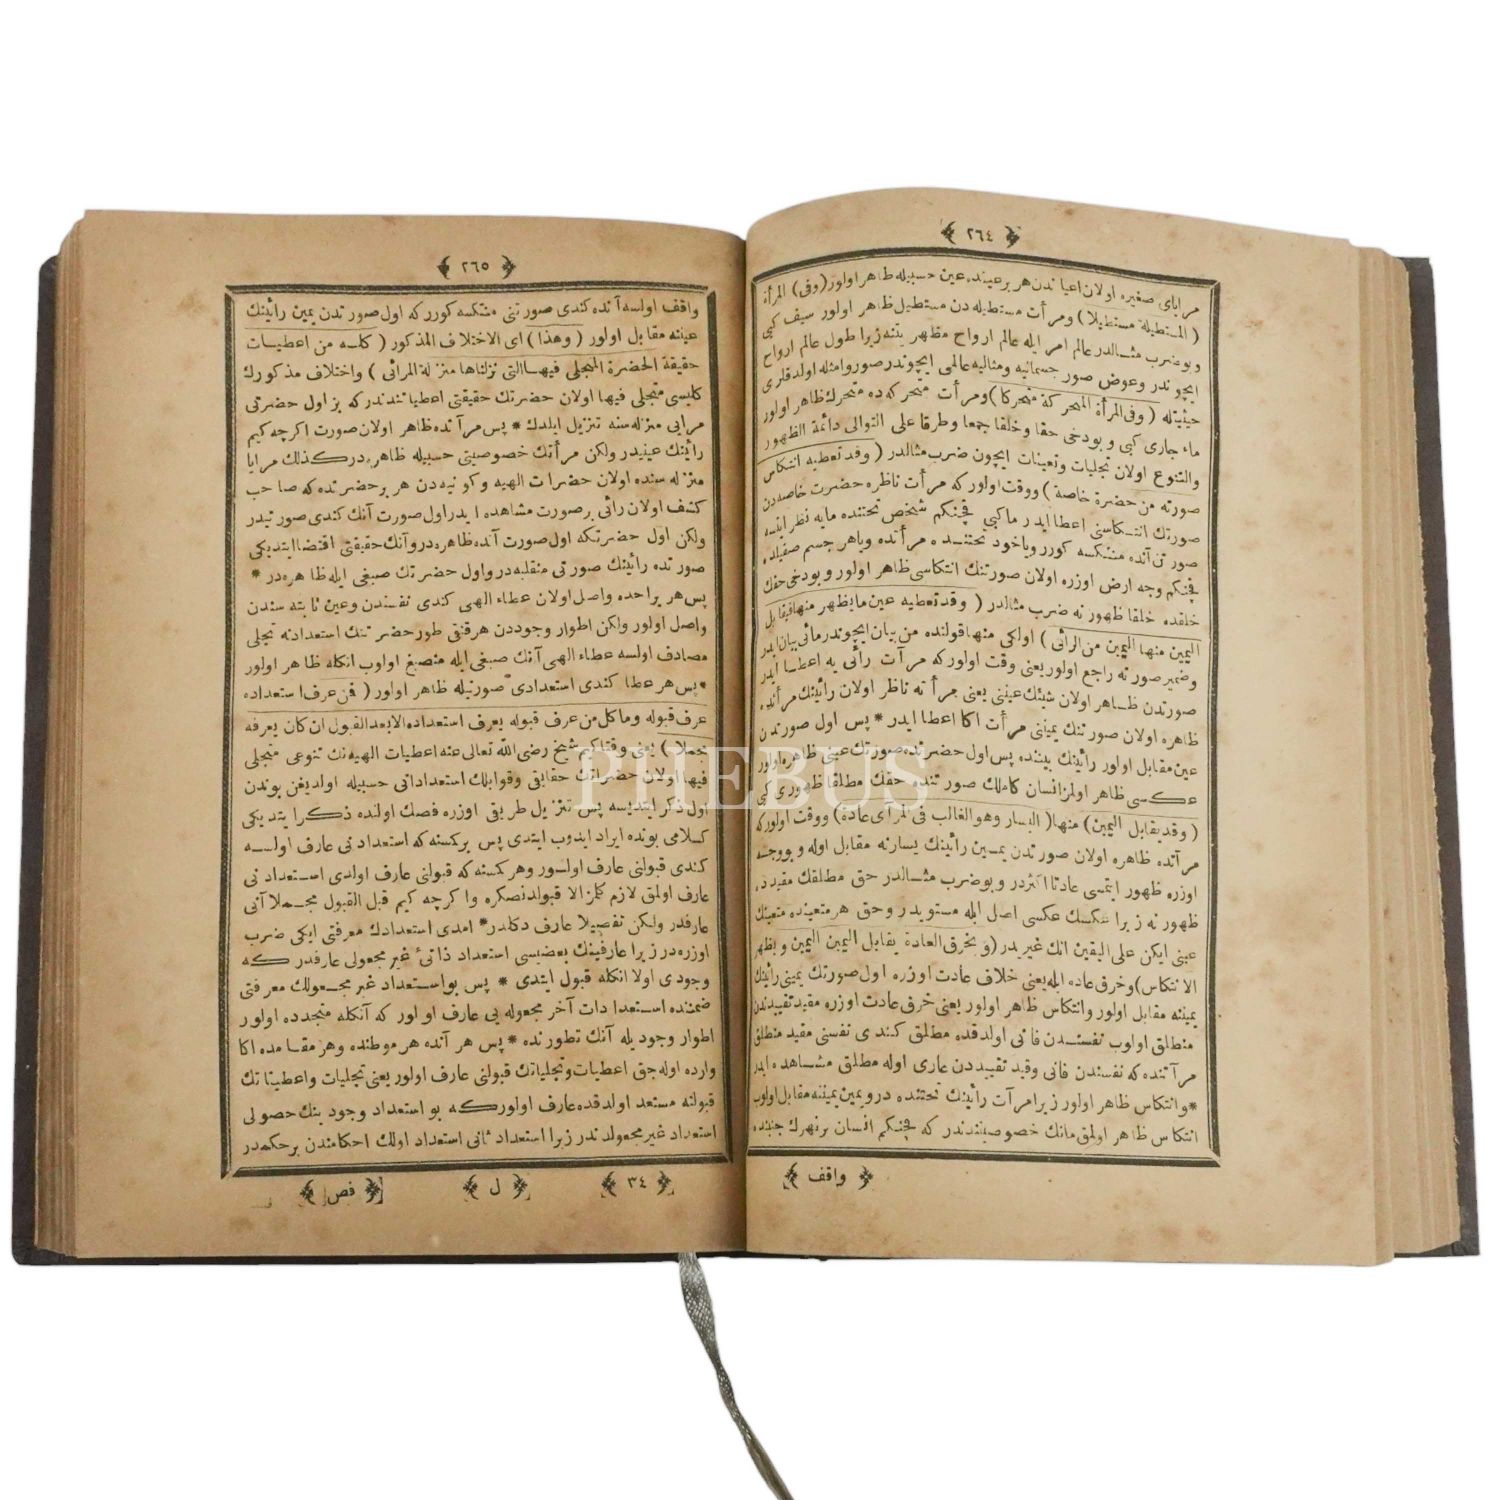 ٢٦٤
مرایای صغیره اولان اعیاندن هر بر عینده عین حسبیله ظاهر اولور (وفی) المرآة
(المستطیلة مستطیلا) ومرآت مستطیله دن مستطیل ظاهر اولور سیف کبی
وبوضرب مثالدر عالم امر ایله عالم ارواح مظهر یتنه زیرا طول عالم ارواح
ایچوندر وعوض صور جسمانیه ومثالیه عالمی ایچوندر صور وامثله اولدقلری
حیثیتله (وفی المرآة المتحرکة متحرکا) ومرآت متحرکه ده متحرك ظاهر اولور
ماء جاری کبی وبودخی حقا وخلقا جمعا وطرقا علی التوالی دائمة الظهور
والتنوع اولان تجلیات وتعینات ایچون ضرب مثالدر (وقد تعطیه انتکاس
صورته من حضرة خاصة) ووقت اولور که مرآت ناظره حضرت خاصه دن
صورتك انتکاسنی اعطا ایدر ما کبی قچنکم شخص تحتنده مایه نظر ایتسه
صورتن آنده منتکسه کورر ویاخود تحتنده مرآتده ویاهر جسم صقیلده
قچنکم وجه ارض اوزره اولان صورتنك انتکاسی ظاهر اولور وبودخی حقك
خلقده خلقا ظهورنه ضرب مثالدر (وقد تعطیه عین مایظهر منها فیقابل
الیمین منها الیمین من الرائی) اولکی منها قولنده من بیان ایچوندر مائی بیان ایدر
وضمیر صورته راجع اولور یعنی وقت اولور که مرآت رائی یه اعطا ایدر
صورتدن ظاهر اولان شیئك عیننی یعنی مرآته ناظر اولان رائینك مرآتده
ظاهره اولان صورتنك یمیننی مرآت اکا اعطا ایدر * پس اول صورتدن
عین مقابل اولور رائینك یمیننه پس اول حضرتده صورتك عینی ظاهره اولور
عکسی ظاهر اولمز انسان کاملك صورتنده حقك مطلقا ظهوری کبی
(وقد یقابل الیمین) منها (الیسار وهو الغالب فی المرآی عادة) ووقت اولور که
مرآتده ظاهره اولان صورتدن یمین رائینك یسارنه مقابل اوله وبووجه
اوزره ظهور ایتمسی عادتا اکثردر وبوضرب مثالدر حق مطلقك مقیدده
ظهورنه زیرا عکسك عکسی اصل ایله مستویدر وحق هر متعینده متعینك
عینی ایکن علی الیقین انك غیریدر (وبخرق العادة یقابل الیمین الیمین ویظهر
الانتکاس) وخرق عاده ایله یعنی خلاف عادت اوزره اول صورتك یمینی رائینك
یمیننه مقابل اولور وانتکاس ظاهر اولور یعنی خرق عادت اوزره مقید تقییدندن
منطلق اولوب نفسندن فانی اولدقده مطلق کندی نفسنی مقید منطلق
مرآتنده که نفسندن فانی وقید تقییددن عاری اوله مطلق مشاهده ایدر
* وانتکاس ظاهر اولور زیرا مرآت رائینك تحتنده درویمین یمیننه مقابل اولوب
انتکاس ظاهر اولمق مانك خصوصیتندندر که قچنکم انسان بر نهرك جنبنده
واقف
٢٦٥
واقف اولسه آنده کندی صورتنی منتکسه کورر که اول صورتدن یمین رائینك
عیننه مقابل اولور (وهذا) ای الاختلاف المذکور (کله من اعطیات
حقیقة الحضرة المتجلی فیها التی نزلناها منزلة المرائی) واختلاف مذکورك
کلیسی متجلی فیها اولان حضرتك حقیقتی اعطیاتندندر که بز اول حضرتی
مرایی منزله سنه تنزیل ایلدك * پس مرآتده ظاهر اولان صورت اکرچه کیم
رائینك عینیدر ولکن مرآتك خصوصیتی حسبیله ظاهره در کذلك مرایا
منزله سنده اولان حضرات الهیه وکونیه دن هر بر حضرتده که صاحب
کشف اولان رائی بر صورت مشاهده ایدر اول صورت آنك کندی صورتیدر
ولکن اول حضرتکه اول صورت آنده ظاهره در وآنك حقیقتی اقتضا ایتدیکی
صورتده رائینك صورتی منقلبه در واول حضرتك صبغی ایله ظاهره در *
پس هر بر احده واصل اولان عطاء الهی کندی نفسندن وعین ثابته سندن
واصل اولور ولکن اطوار وجوددن هر قنغی طور حضرتنك استعدادنه تجلی
مصادف اولسه عطاء الهی آنك صبغی ایله منصبغ اولوب انکله ظاهر اولور
* پس هر عطا کندی استعدادی صورتیله ظاهر اولور (فمن عرف استعداده
عرف قبوله وما کل من عرف قبوله یعرف استعداده الا بعد القبول ان کان یعرفه
مجملا) یعنی وقتاکیم شیخ رضی الله تعالی عنه اعطیات الهیه نك تنوعی متجلی
فیها اولان حضراتك حقایقی وقوابلك استعداداتی حسبیله اولدیغن بوندن
اول ذکر ایتدیسه پس تنزیل طریقی اوزره فصك اولنده ذکر ایتدیکی
کلامی بونده ایراد ایدوب ایتدی پس بر کمسنه که استعدادنی عارف اولسه
کندی قبولنی عارف اولور وهر کمسنه که قبولنی عارف اولدی استعدادنی
عارف اولمق لازم کلمز الا قبولدنصکره واکرچه کیم قبل القبول مجملا آنی
عارفدر ولکن تفصیلا عارف دکلدر * امدی استعدادك معرفتی ایکی ضرب
اوزره در زیرا عارفینك بعضیسی استعداد ذاتئ غیر مجعولی عارفدر که
وجودی اولا انکله قبول ایتدی * پس بواستعداد غیر مجعولك معرفتی
ضمننده استعدادات آخر مجعوله یی عارف اولور که آنکله متجدده اولور
اطوار وجودیله آنك تطورنده * پس هر آنده هر موطنده وهر مقامده اکا
وارده اوله جق اعطیات وتجلیاتك قبولنی عارف اولور یعنی تجلیات واعطیاتك
قبولنه مستعد اولدقده عارف اولور که بو استعداد وجودینك حصولی
استعداد غیر مجعولدندر زیرا استعداد ثانی استعداد اولك احکامندن بر حکمدر
٣٤
ل
فص
PHEBUS